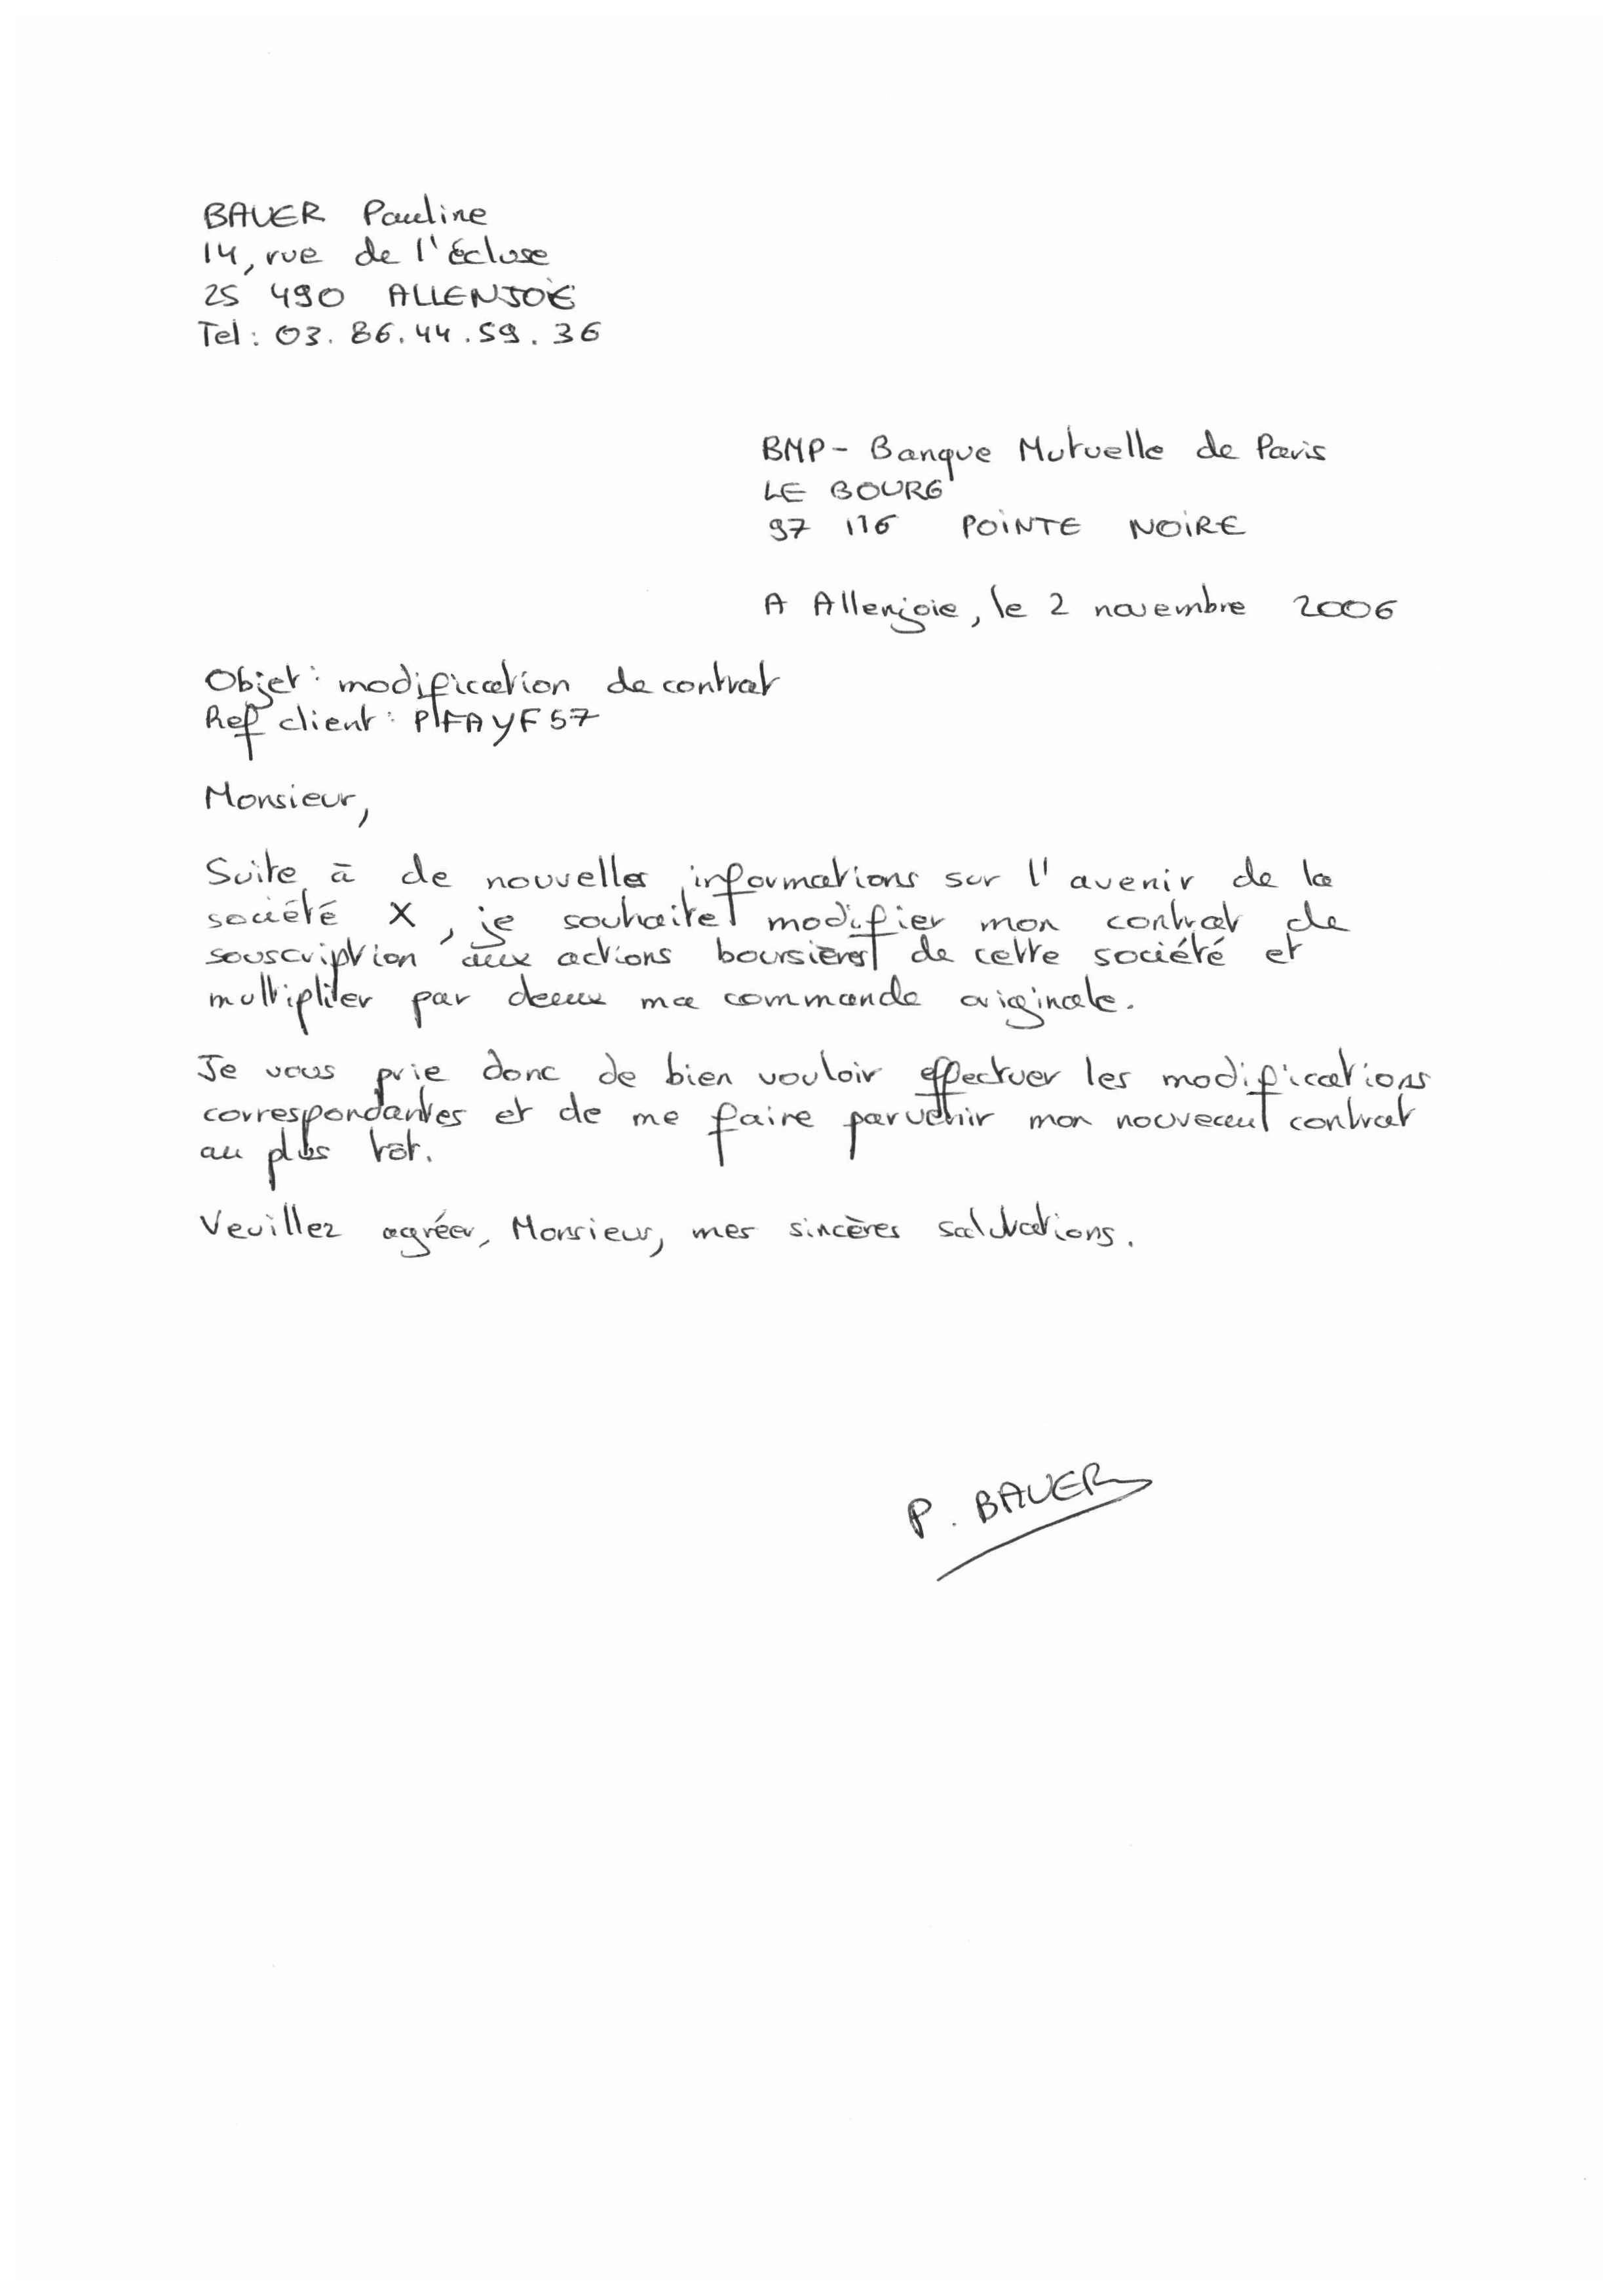 BAUER Pauline
14, rue de l'écluse
25 490 ALLENJOIE
Tel : 03. 86. 44. 59. 36
BMP - Banque Mutuelle de Paris
LE BOURG
97 116 POINTE NOIRE
A Allenjoie, le 2 novembre 2006
Objet : modification de contrat
Ref client : PFAYF57
Monsieur,
Suite à de nouvelles informations sur l'avenir de la
société X, je souhaite modifier mon contrat de
souscription aux actions boursières de cette société et
multiplier par deux ma commande originale.
Je vous prie donc de bien vouloir effectuer les modifications
correspondantes et de me faire parvenir mon nouveau contrat
au plus tôt.
Veuillez agréer, Monsieur, mes sincères salutations.
P. BAUER